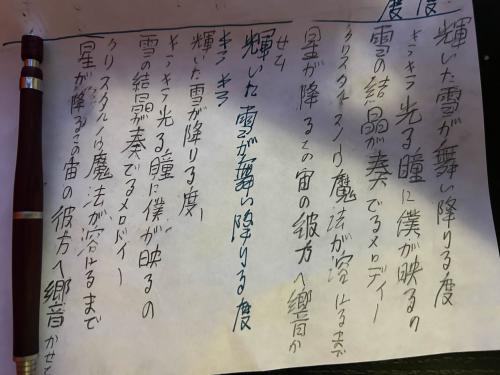 度 度
輝いた雪が舞い降りる度
キラキラ光る瞳に僕が映るの
雪の結晶が奏でるメロディー
クリスタルスノウ魔法が溶けるまで
星が降るこの宙の彼方へ響か
せて
輝いた雪が舞い降りる度
キラキラ
輝いた雪が降りる度、
キラキラ光る瞳に僕が映るの
雪の結晶が奏でるメロディー
クリスタルスノウ魔法が溶けるまで
星が降るこの宙の彼方へ響かせて